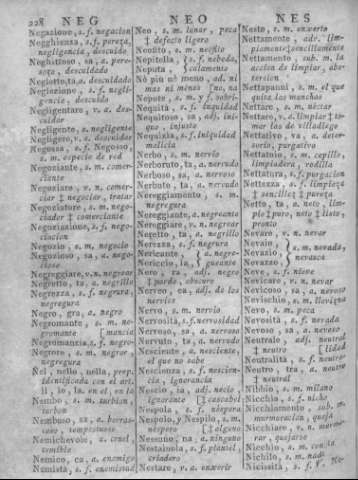 228 NEG NEO NES
Negazione, s. f. negacion
Negghienza, s. f. pereza,
negligencia, descuido
Neghittoso, sa, a. pere-
zoso, descuidado
Negletto, ta, a. descuidado
Neglezione, s. f. negli-
gencia, descuido
Negligentare, v. a. des-
cuidar
Negligente, a. negligente
Negligere, v. a. descuidar
Negossa, s. f. Negosso,
s. m. especie de red
Negoziante, s. m. comer-
ciante
Negoziare, v. n. comer-
ciar ‡ negociar, tratar
Negoziatore, s. m. nego-
ciador ‡ comerciante
Negoziazione, s. f. nego-
ciacion
Negozio, s. m. negocio
Negozioso, sa, a. nego-
cioso
Negreggiare, v. n. negrear
Negretto, ta, a. negrillo
Negrezza, s. f. negrura,
negregura
Negro, gra, a. negro
Negromante, s. m. ne-
gromante [mancia
Negromanzia, s. f. negro-
Negrore, s. m. negror,
negregura
Nel, nello, nella, prep.
identificada con el art.
il, lo, la, en el, en la
Nembo, s. m. turbion,
turbon
Nemboso, sa, a. borras-
coso, tempestuoso
Nemichevole, a. cruel,
Nemico, ca, a. enemigo
Nemistà, s. f. enemistad
Neo, s. m. lunar, peca
‡ defecto ligero
Neofito, s. m. neofito
Nepitella, s. f. nebeda,
Nepota calamento
Nè più nè meno, ad. ni
mas ni menos [no, na
Nepote, s. m. y f. sobri-
Nequità, s. f. iniquidad
Nequitoso, sa, adj. ini-
quo, injusto
Nequizia, s. f. iniquidad
malicia
Nerbo, s. m. nervio
Nerboruto, ta, a. nervudo
Nerboso, sa, a. nervoso
Nerbuto, ta, a. nervudo
Nereggiamento, s. m.
negregura
Nereggiante, a. negreante
Nereggiare, v. n. negrear
Neretto, ta, a. negrillo
Nerezza, s. f. negrura
Nericante, a. negro-
Nericcio, ia guzante
Nero, ra, adj. negro
‡ pardo, obscuro
Nerveo, ea, adj. de los
nervios
Nervo, s. m. nervio
Nervosità, s. f. nervosidad
Nervoso, sa, a. nervoso
Nervuto, ta, a. nervudo
Nesciente, a. nesciente,
el que no sabe
Nescienza, s. f. nescien-
cia, ignorancia
Nescio, ia, adj. necio
ignorante [‡ cascabel
Nespola, s. f. níspero
Nespolo, y Nespilo, s. m.
níspero [‡ alguno
Nessuno, na, a. ninguno
Nestaiuola, s. f. plantel,
criadero
Nestare, v. a. enxerir
Nesto, s. m. enxerto
Nettamente, adv. lim-
piamente ‡ sencillamente
Nettamento, sub. m. la
accion de limpiar, abs-
tersion
Nettapanni, s. m. el que
quita las manchas
Nettare, s. m. nectar
Nettare, v. a. limpiar ‡ to-
mar las de villadiego
Nettativo, va, a. deter-
sorio, purgativo
Nettatoio, s. m. cepillo,
limpiadera, rodilla
Nettatura, s. f. purgacion
Nettezza, s. f. limpieza
‡ sencillez ‡ pureza
Netto, ta, a. neto, lim-
pio ‡ puro, neto ‡ listo,
pronto
Nevare, v. n. nevar
Nevaio,
Nevazio, s. m. nevada,
Nevazzo nevasca
Neve, s. f. nieve
Nevicare, v. n. nevar
Nevicoso, sa, a. nevoso
Nevischio, s. m. llovizna
Nevo, s. m. peca
Nevosità, s. f. nevada
Nevoso, sa, a. nevoso
Neutrale, adj. neutral
‡ neutro [lidad
Neutralità, s. f. neutra-
Neutro, tra, a. neutro
‡ neutral
Nibbio, s. m. milano
Nicchia, s. f. nicho
Nicchiamento, sub. m.
murmuracion, queja
Nicchiare, v. n. murmu-
rar, quejarse
Nicchio, s. m. concha
Nichilo, s. m. nada
Nicissità, s. f. V. Ne-